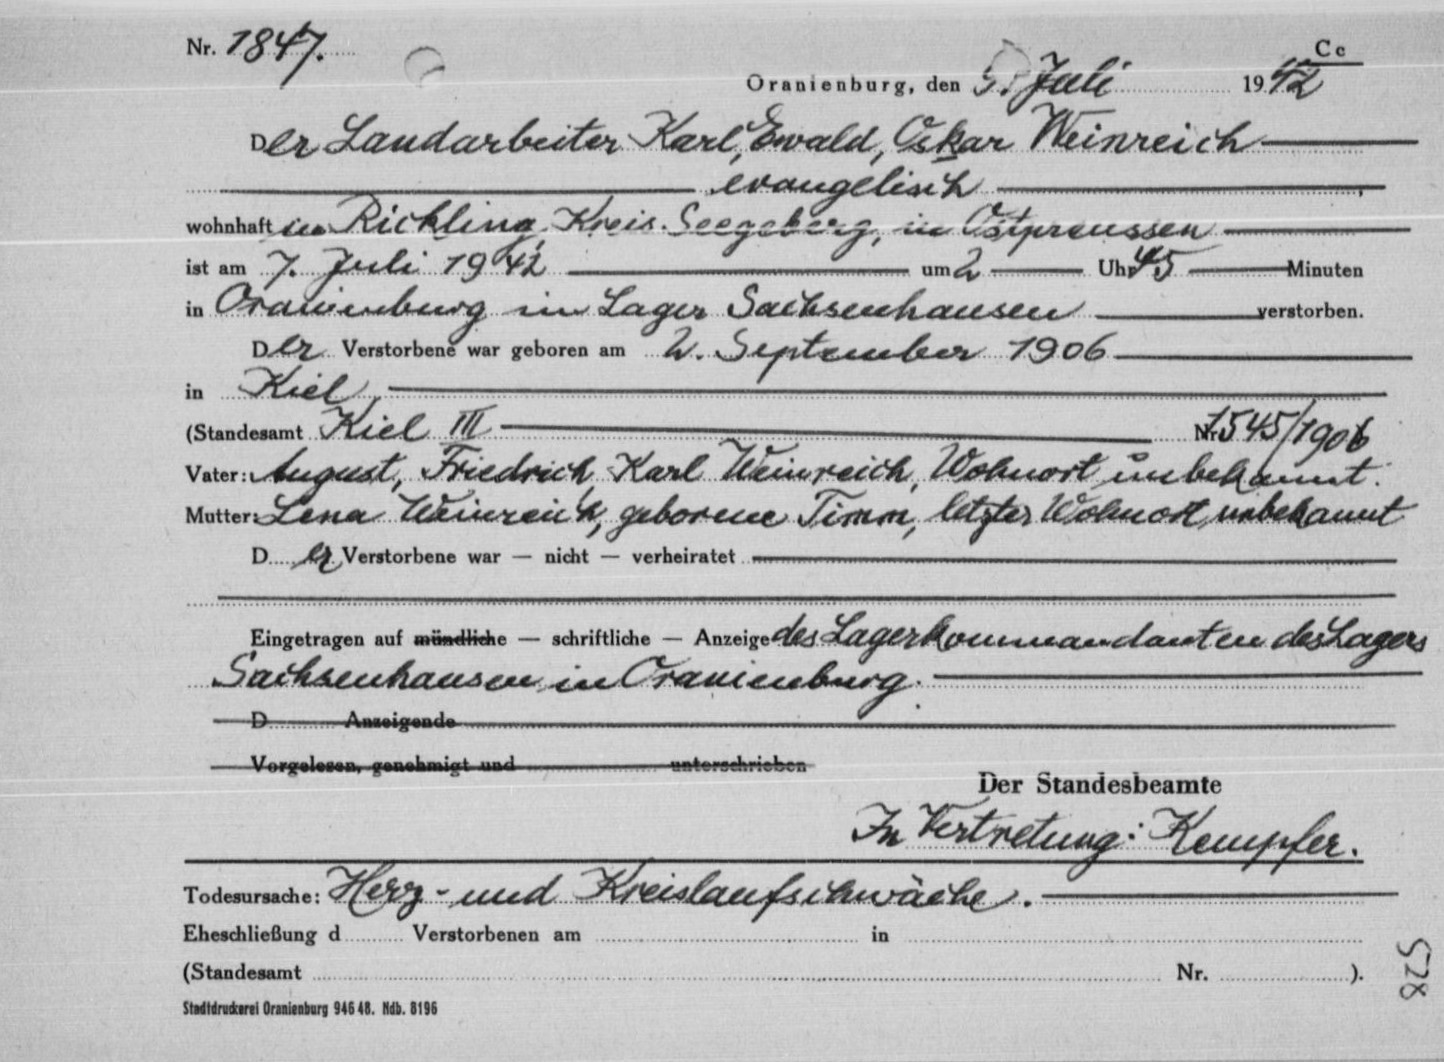 Nr. 1847.
Cc
Oranienburg, den Juli 1942
Der Landarbeiter Karl, Ewald, Oskar Weinreich
evangelisch
wohnhaft in Rickling, Kreis Seegeberg, in Ostpreussen
ist am 7. Juli 1942 um 2 Uhr 45 Minuten
in Oranienburg im Lager Sachsenhausen verstorben.
Der Verstorbene war geboren am 2. September 1906
in Kiel,
(Standesamt Kiel III Nr. 1545/1906
Vater: August, Friedrich, Karl Weinreich, Wohnort unbekannt.
Mutter: Lena Weinreich, geborene Timm, letzter Wohnort unbekannt
Der Verstorbene war — nicht — verheiratet
Eingetragen auf mündliche — schriftliche — Anzeige des Lagerkommandanten des Lagers
Sachsenhausen in Oranienburg.
D Anzeigende
Vorgelesen, genehmigt und unterschrieben
Der Standesbeamte
In Vertretung: Kempfer.
Todesursache: Herz- und Kreislaufschwäche.
Eheschließung d Verstorbenen am in
(Standesamt Nr. ).
Stadtdruckerei Oranienburg 946 48. Ndb. 8196
528